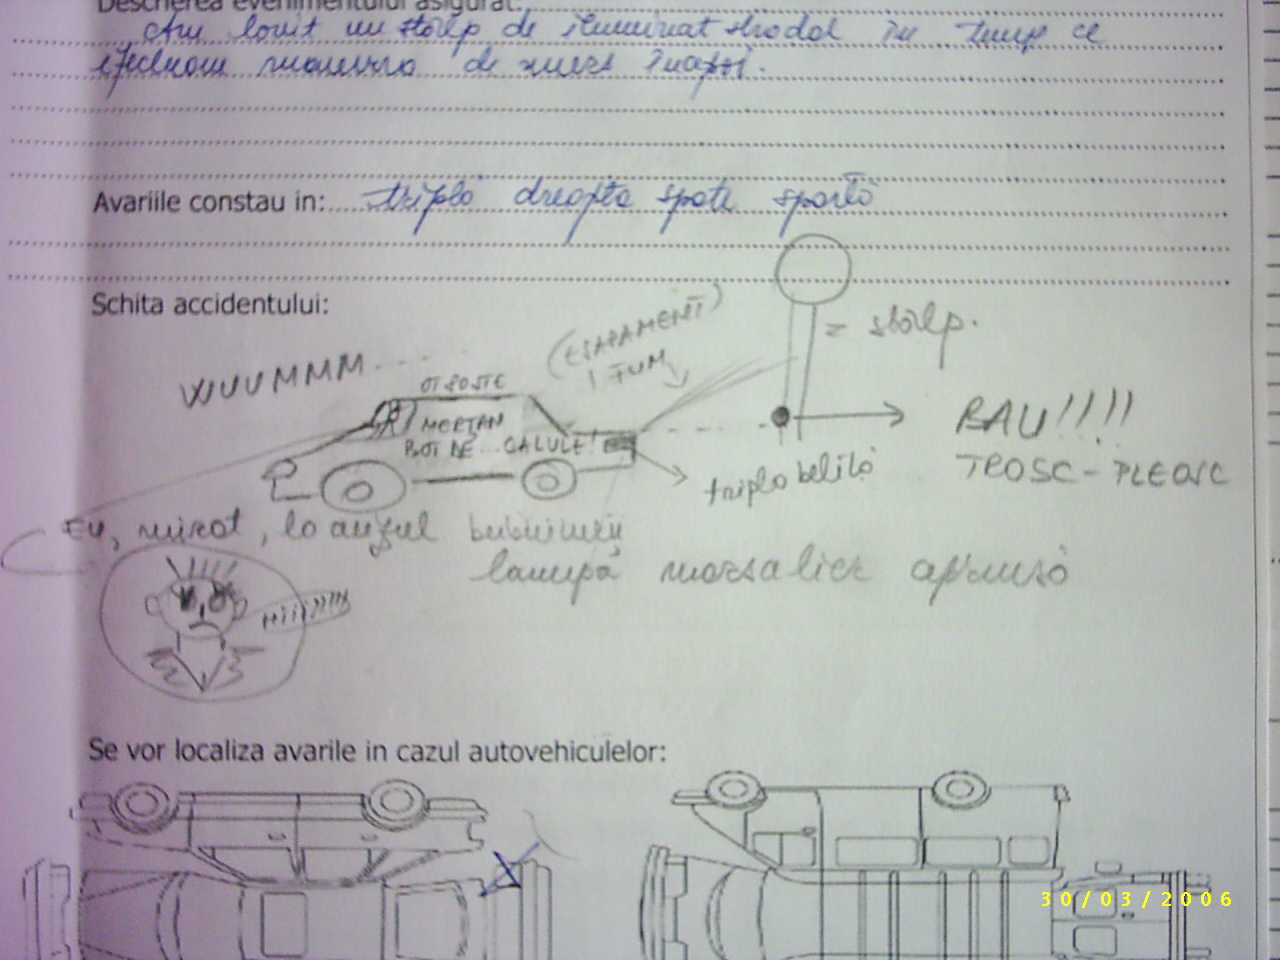 Descrierea evenimentului asigurat:
Am lovit un stâlp de iluminat stradal în timp ce
efectuam manevra de mers înapoi.
Avariile constau in: triplă dreapta spate spartă
Schita accidentului:
WUUMMM...
(ESAPAMENT)
! FUM
= stâlp.
MERTAN
BOT DE CALULE!
BAU!!!!
TROSC-PLEOSC
tripla belită
Eu, mirat, la auzul bubuiturii
lampă marsalier aprinsă
HIII????
Se vor localiza avarile in cazul autovehiculelor:
30/03/2006